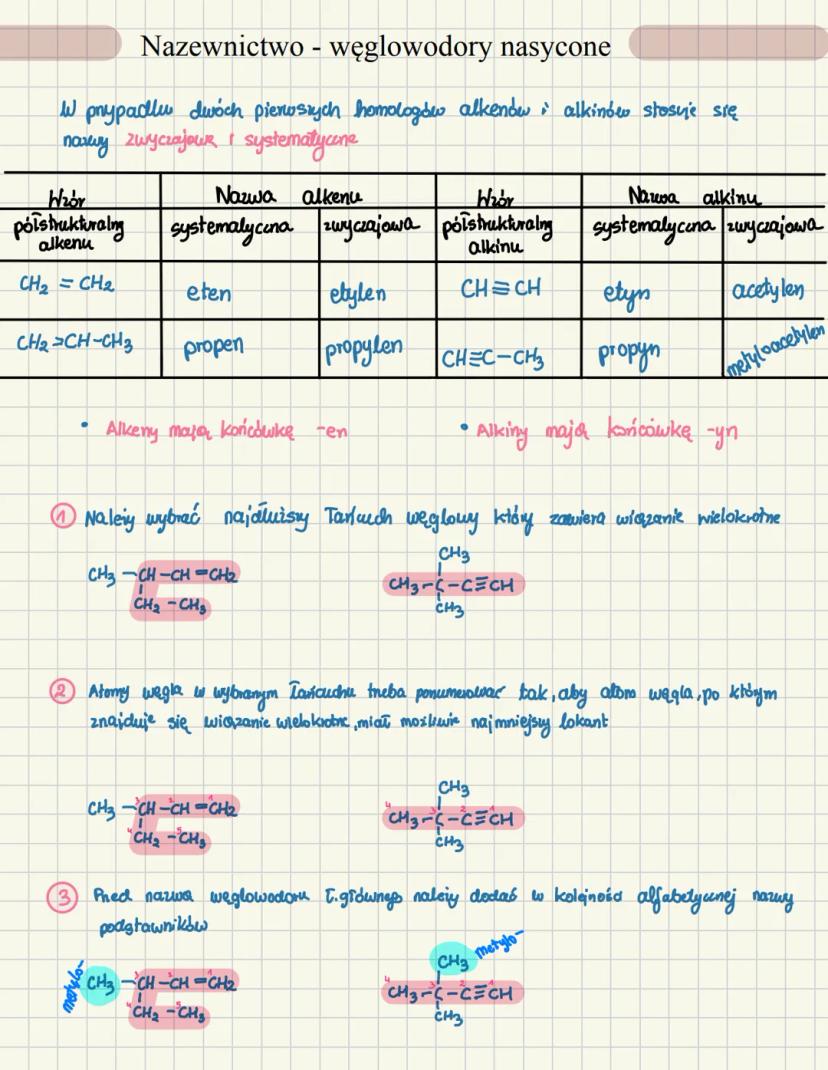 Nazewnictwo - węglowodory nasycone
W przypadku dwóch pierwszych homologów alkenów i alkinów stosuje się
nazwy zwyczajowe i systematyczne
Wzór półstrukturalny alkenu | Nazwa alkenu | Wzór półstrukturalny alkinu | Nazwa alkinu
systematyczna | zwyczajowa | systematyczna | zwyczajowa
CH₂ = CH₂ | eten | etylen | CH≡CH | etyn | acetylen
CH₂=CH-CH₃ | propen | propylen | CH≡C-CH₃ | propyn | metyloacetylen
• Alkeny mają końcówkę -en
• Alkiny mają końcówkę -yn
① Należy wybrać najdłuższy łańcuch węglowy który zawiera wiązanie wielokrotne
CH₃
CH₃ -CH-CH=CH₂ CH₃-C-C≡CH
CH₂-CH₃ CH₃
② Atomy węgla w wybranym łańcuchu trzeba ponumerować tak, aby atom węgla, po którym
znajduje się wiązanie wielokrotne, miał możliwie najmniejszy lokant
CH₃
3 2 1 4 3 2 1
CH₃ -CH-CH=CH₂ CH₃-C-C≡CH
4 5
CH₂-CH₃ CH₃
③ Przed nazwą węglowodoru ł.głównego należy dodać w kolejności alfabetycznej nazwy
podstawników
metylo-
CH₃ metylo-
3 2 1 4 3 2 1
CH₃ -CH-CH=CH₂ CH₃-C-C≡CH
4 5
CH₂-CH₃ CH₃